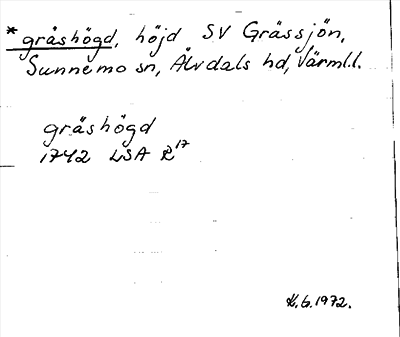 * gråshögd, höjd SV Gräs­sjön,
Sunnemo sn, Älvdals hd, Värml.l.
gråshögd
1742 LSA R17
K.G.1972.